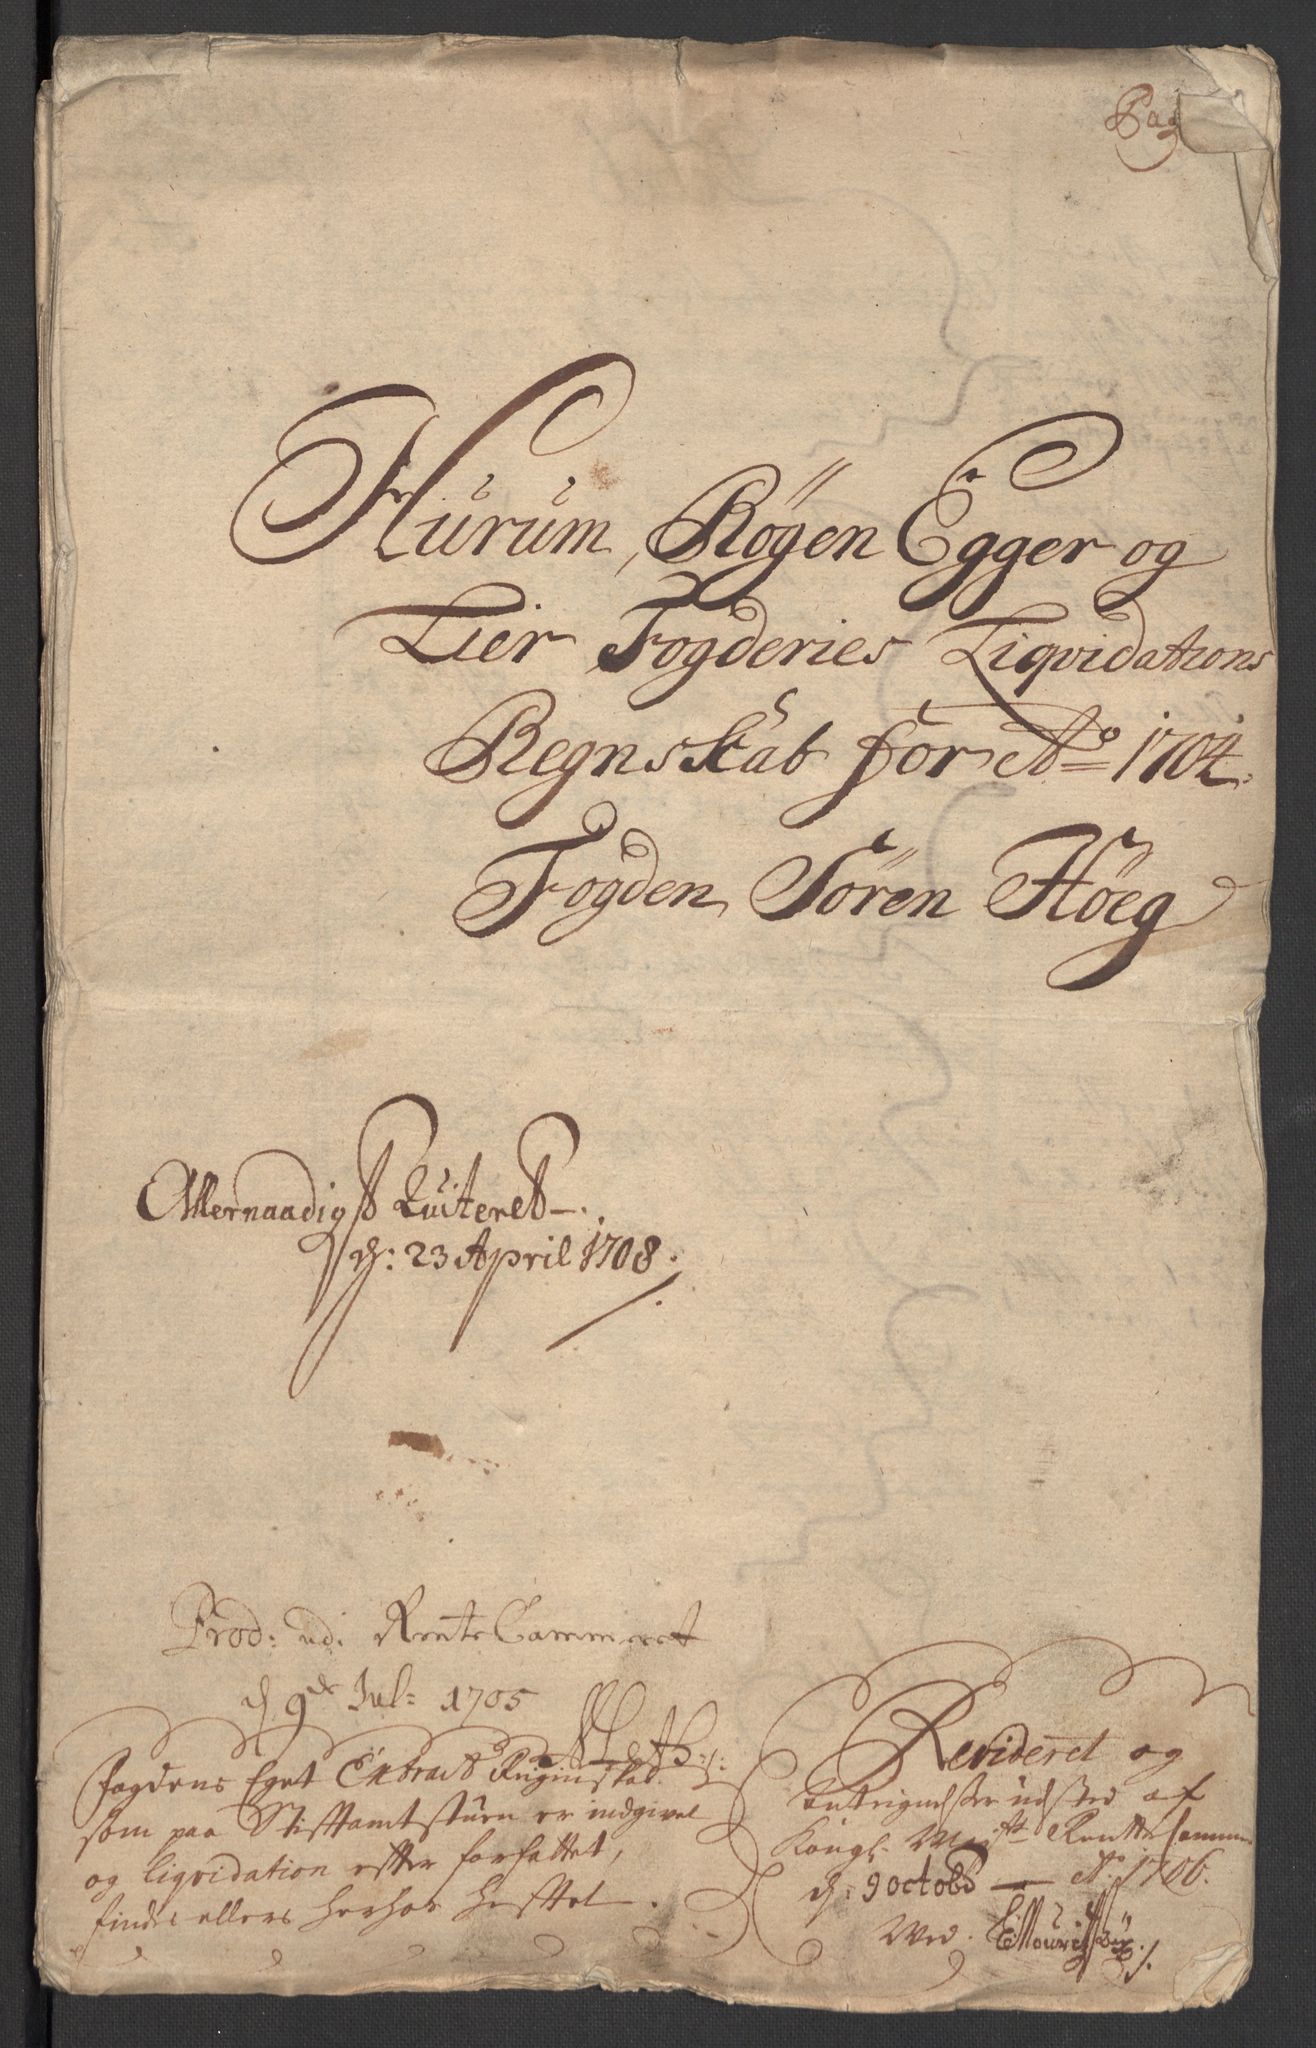 Pag
Hurum, Røgen Egger og
Lier Fogderies Liqvidations
Regnskab for Ao 1704.
Fogden Sören Höeg
Allernaadigst Quiteret
d: 23 April 1708.
Prod: udi Rente Cammeret
d 9de Jul: 1705
Fogdens Eget Extract Regnskab
som paa Stiftamtstuen er indgivet
og liqvidation efter forfattet,
findes ellers herhos heftet.
Revideret og
Antegnelser udsted af
Kongl. Mayst Rente Cammer
d: 9 octobr Ao 1706.
Ved.